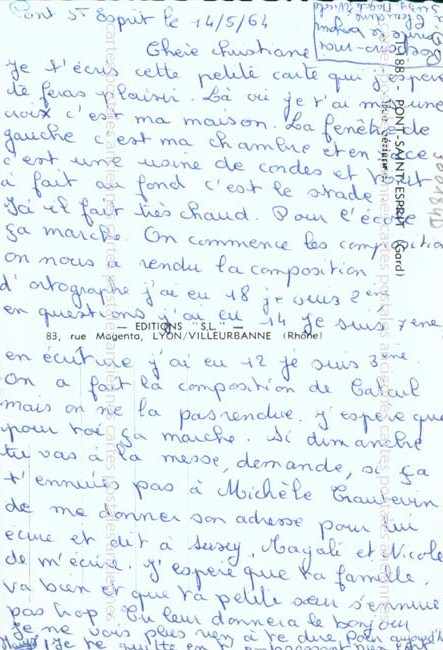 Pont St Esprit le 14/5/64
Chère christiane
Je t'écris cette petite carte qui j'espère
te feras plaisir. Là où je t'ai mis une
croix c'est ma maison. La fenêtre de
gauche c'est ma chambre et en face
c'est une usine de cordes et tout
à fait au fond c'est le stade
Ici il fait très chaud. Pour l'école
ça marche. On commence les composition
on nous a rendu la composition
d'ortographe j'ai eu 18 je suis 2ème
en questions j'ai eu 14 Je suis 7ème
— EDITIONS "S.L." —
83, rue Magenta, LYON/VILLEURBANNE (Rhône)
en écriture j'ai eu 12 je suis 3ème
On a fait la composition de Calcul
mais on ne la pas rendue. J'espère que
pour toi ça marche. Si dimanche
tu vas à la messe, demande, si ça
t'ennuis pas à Michèle
de me donner son adresse pour lui
écrire et dit à Susey, Magali et Nicole
de m'écrire. J'espère que ta famille
va bien et que ta petite sœur s'ennuie
pas trop. Tu leur donnera le bonjour
Je ne vois plus rien à te dire pour aujourd'hui
Je te quitte en t'embrassant bien fort
PONT-SAINT-ESPRIT (Gard)